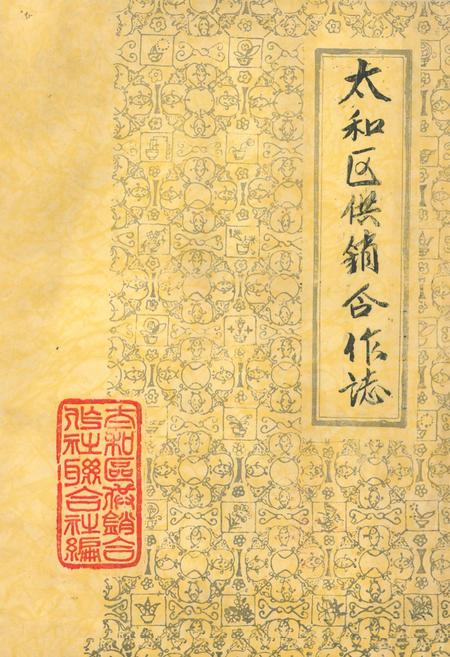 太和区供销合作誌
太和區供銷合
作社聯合社編